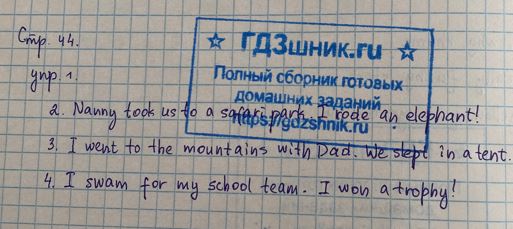 Стр. 44.
☆ ГДЗшник.ru ☆
Полный сборник готовых
домашних заданий
https://gdzshnik.ru
упр. 1.
2. Nanny took us to a safari park. I rode an elephant!
3. I went to the mountains with Dad. We slept in a tent.
4. I swam for my school team. I won a trophy!